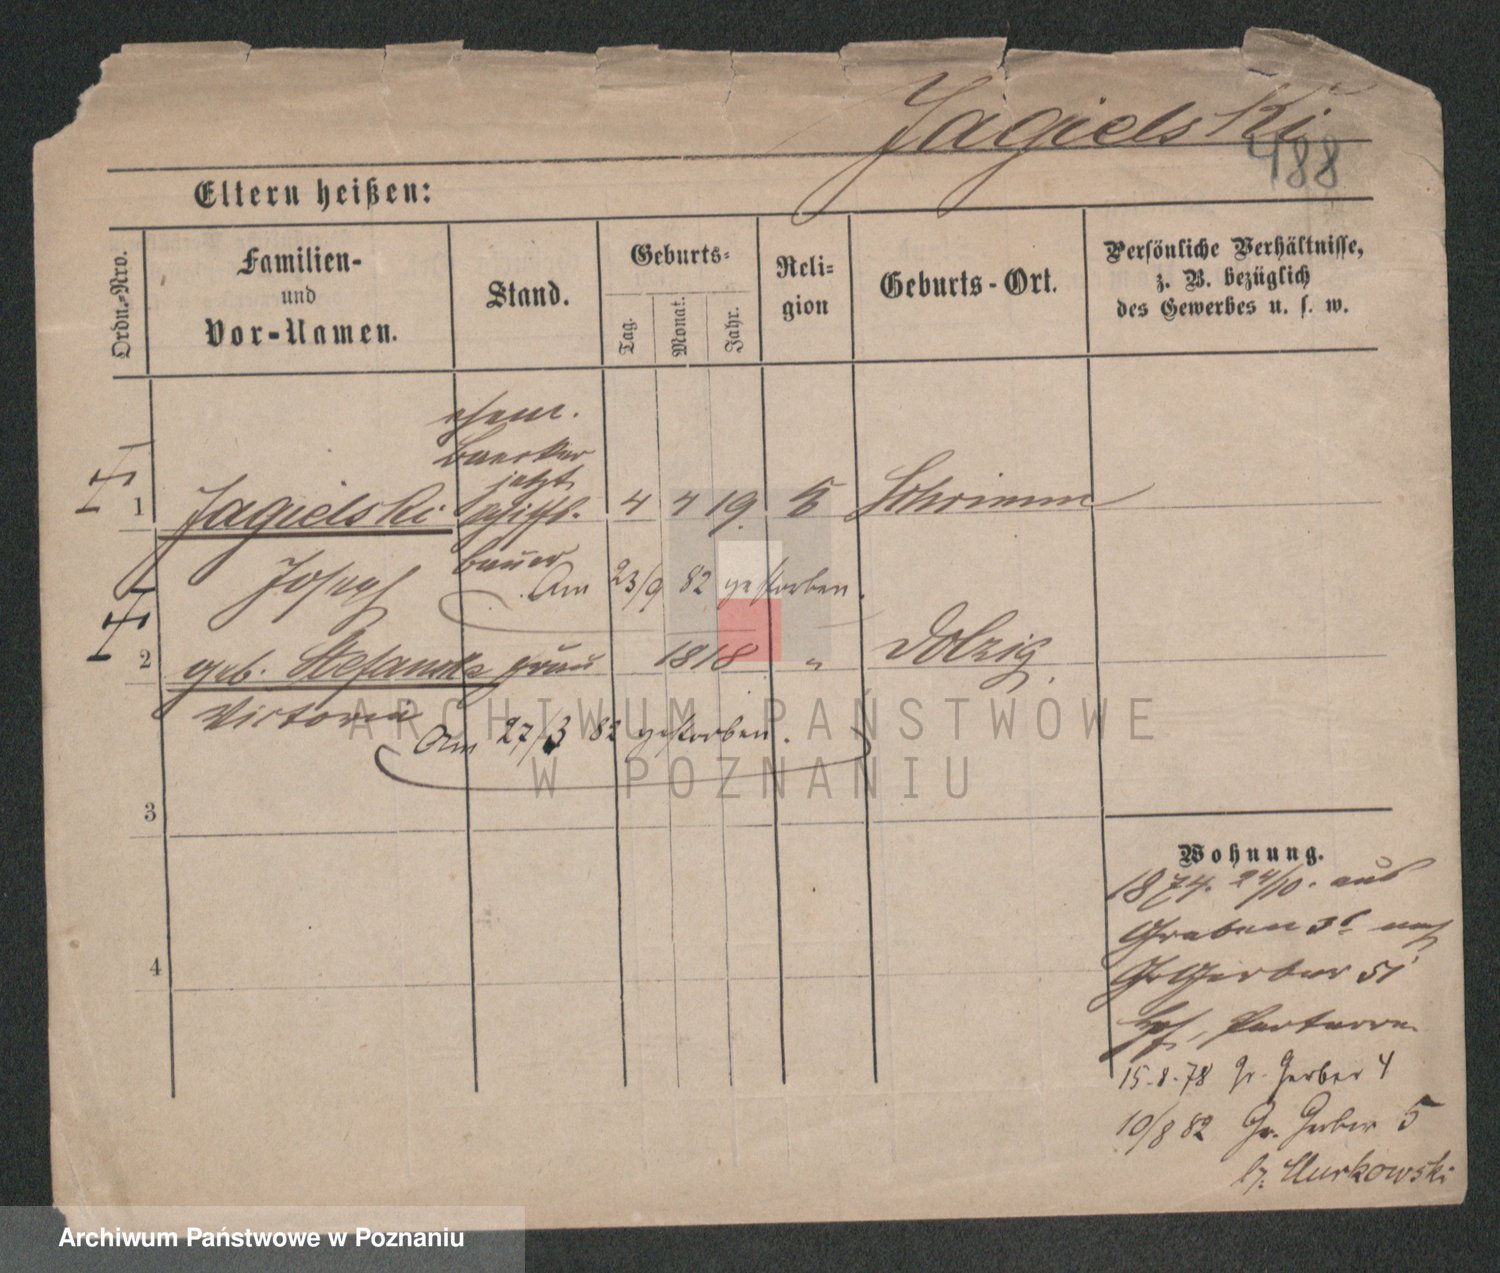 Jagielski
488
Eltern heißen:
Ordn.-Nro.
Familien-
und
Vor-Namen.
Stand.
Geburts-
Tag.
Monat.
Jahr.
Reli-
gion
Geburts-Ort.
Persönliche Verhältnisse,
z. B. bezüglich
des Gewerbes u. s. w.
ehem.
jetzt
1 Jagielski 4 4 19. Schrimm
bauer
Joseph
Am 23/9 82 gestorben.
2 geb. Stefanska Frau 1818 " Dolzig
Victoria
Am 27/3 82 gestorben.
3
4
Wohnung.
1874. 24/10. aus
Graben nach
Gr Gerber 51
Parterre
15.8.78 Gr. Gerber 4
10/8 82 Gr. Gerber 5
b. Murkowski
ARCHIWUM PAŃSTWOWE
W POZNANIU
Archiwum Państwowe w Poznaniu